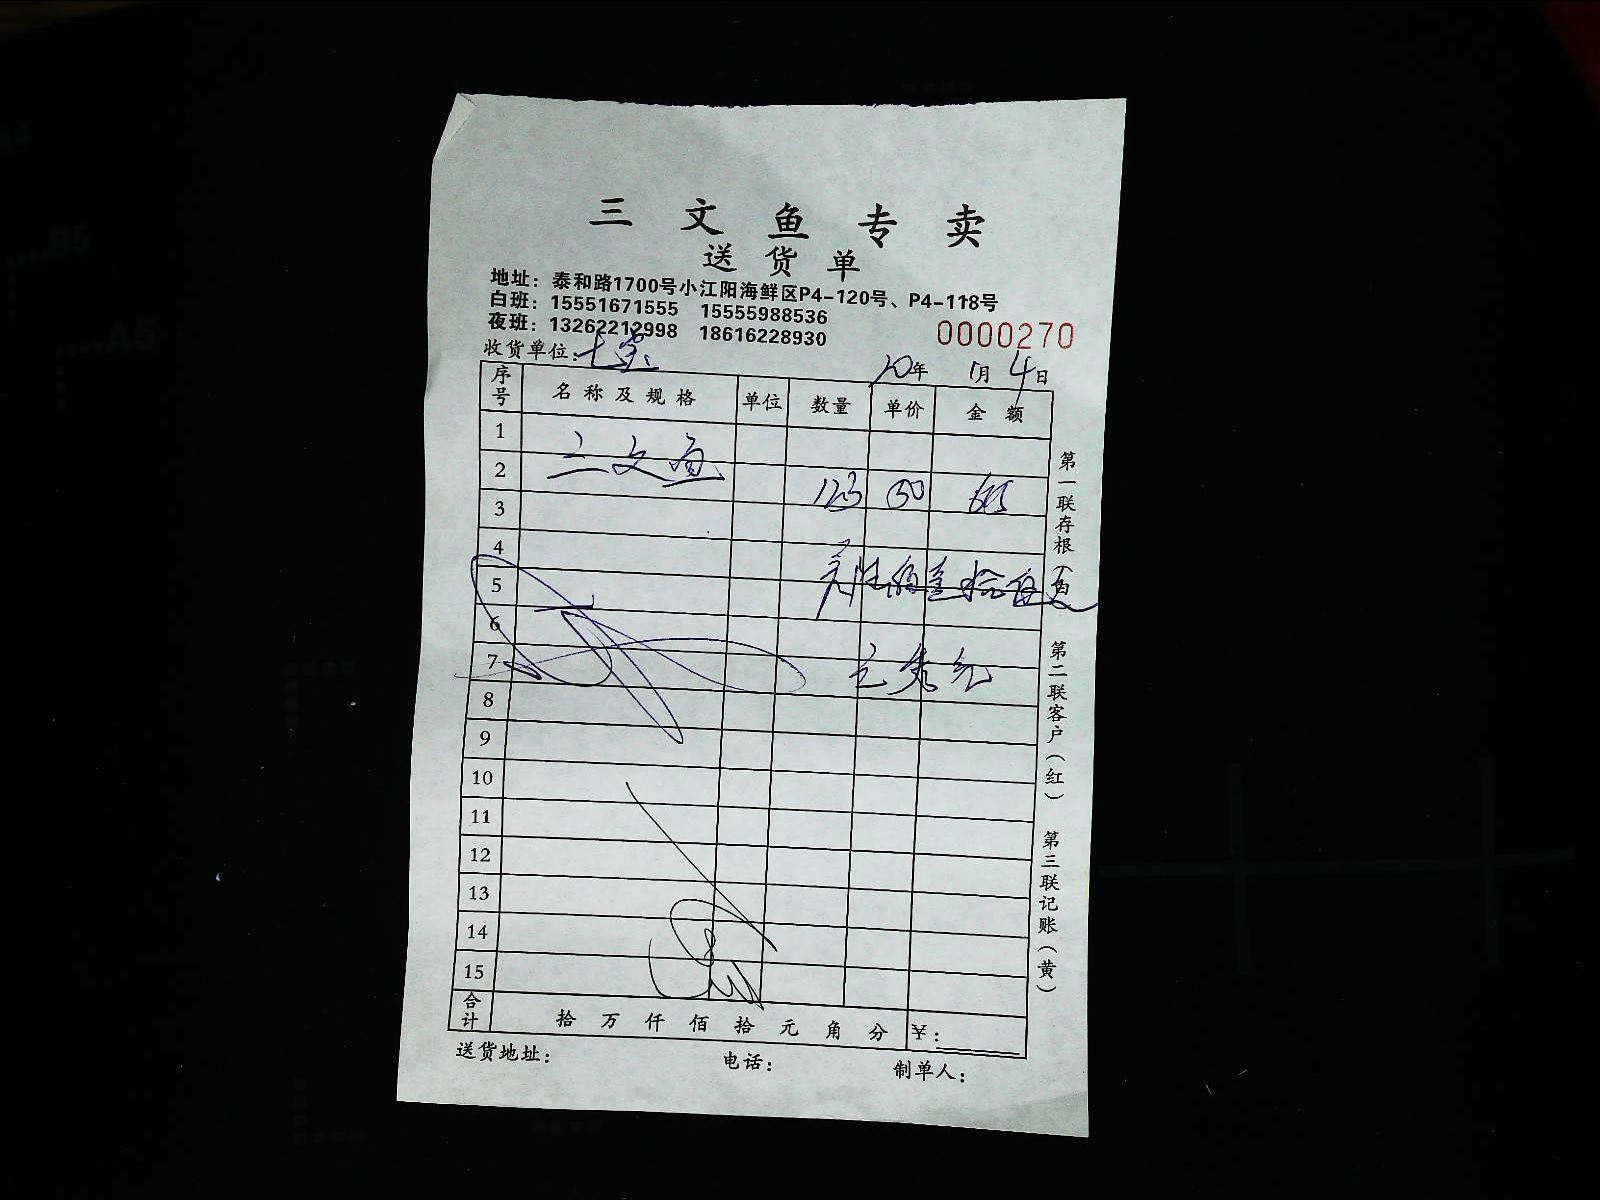 三文鱼专卖
送货单
地址：泰和路1700号小江阳海鲜区P4-120号、P4-118号
白班：15551671555 15555988536
夜班：13262212998 18616228930
0000270
收货单位：七宝 20年 1月 4日
序号 名称及规格 单位 数量 单价 金额
1
2 三文鱼 123 50 615
3
4
5
6
7
8
9
10
11
12
13
14
15
合计 拾 万 仟 佰 拾 元 角 分 ￥：
送货地址： 电话： 制单人：
第一联存根（白） 第二联客户（红） 第三联记账（黄）